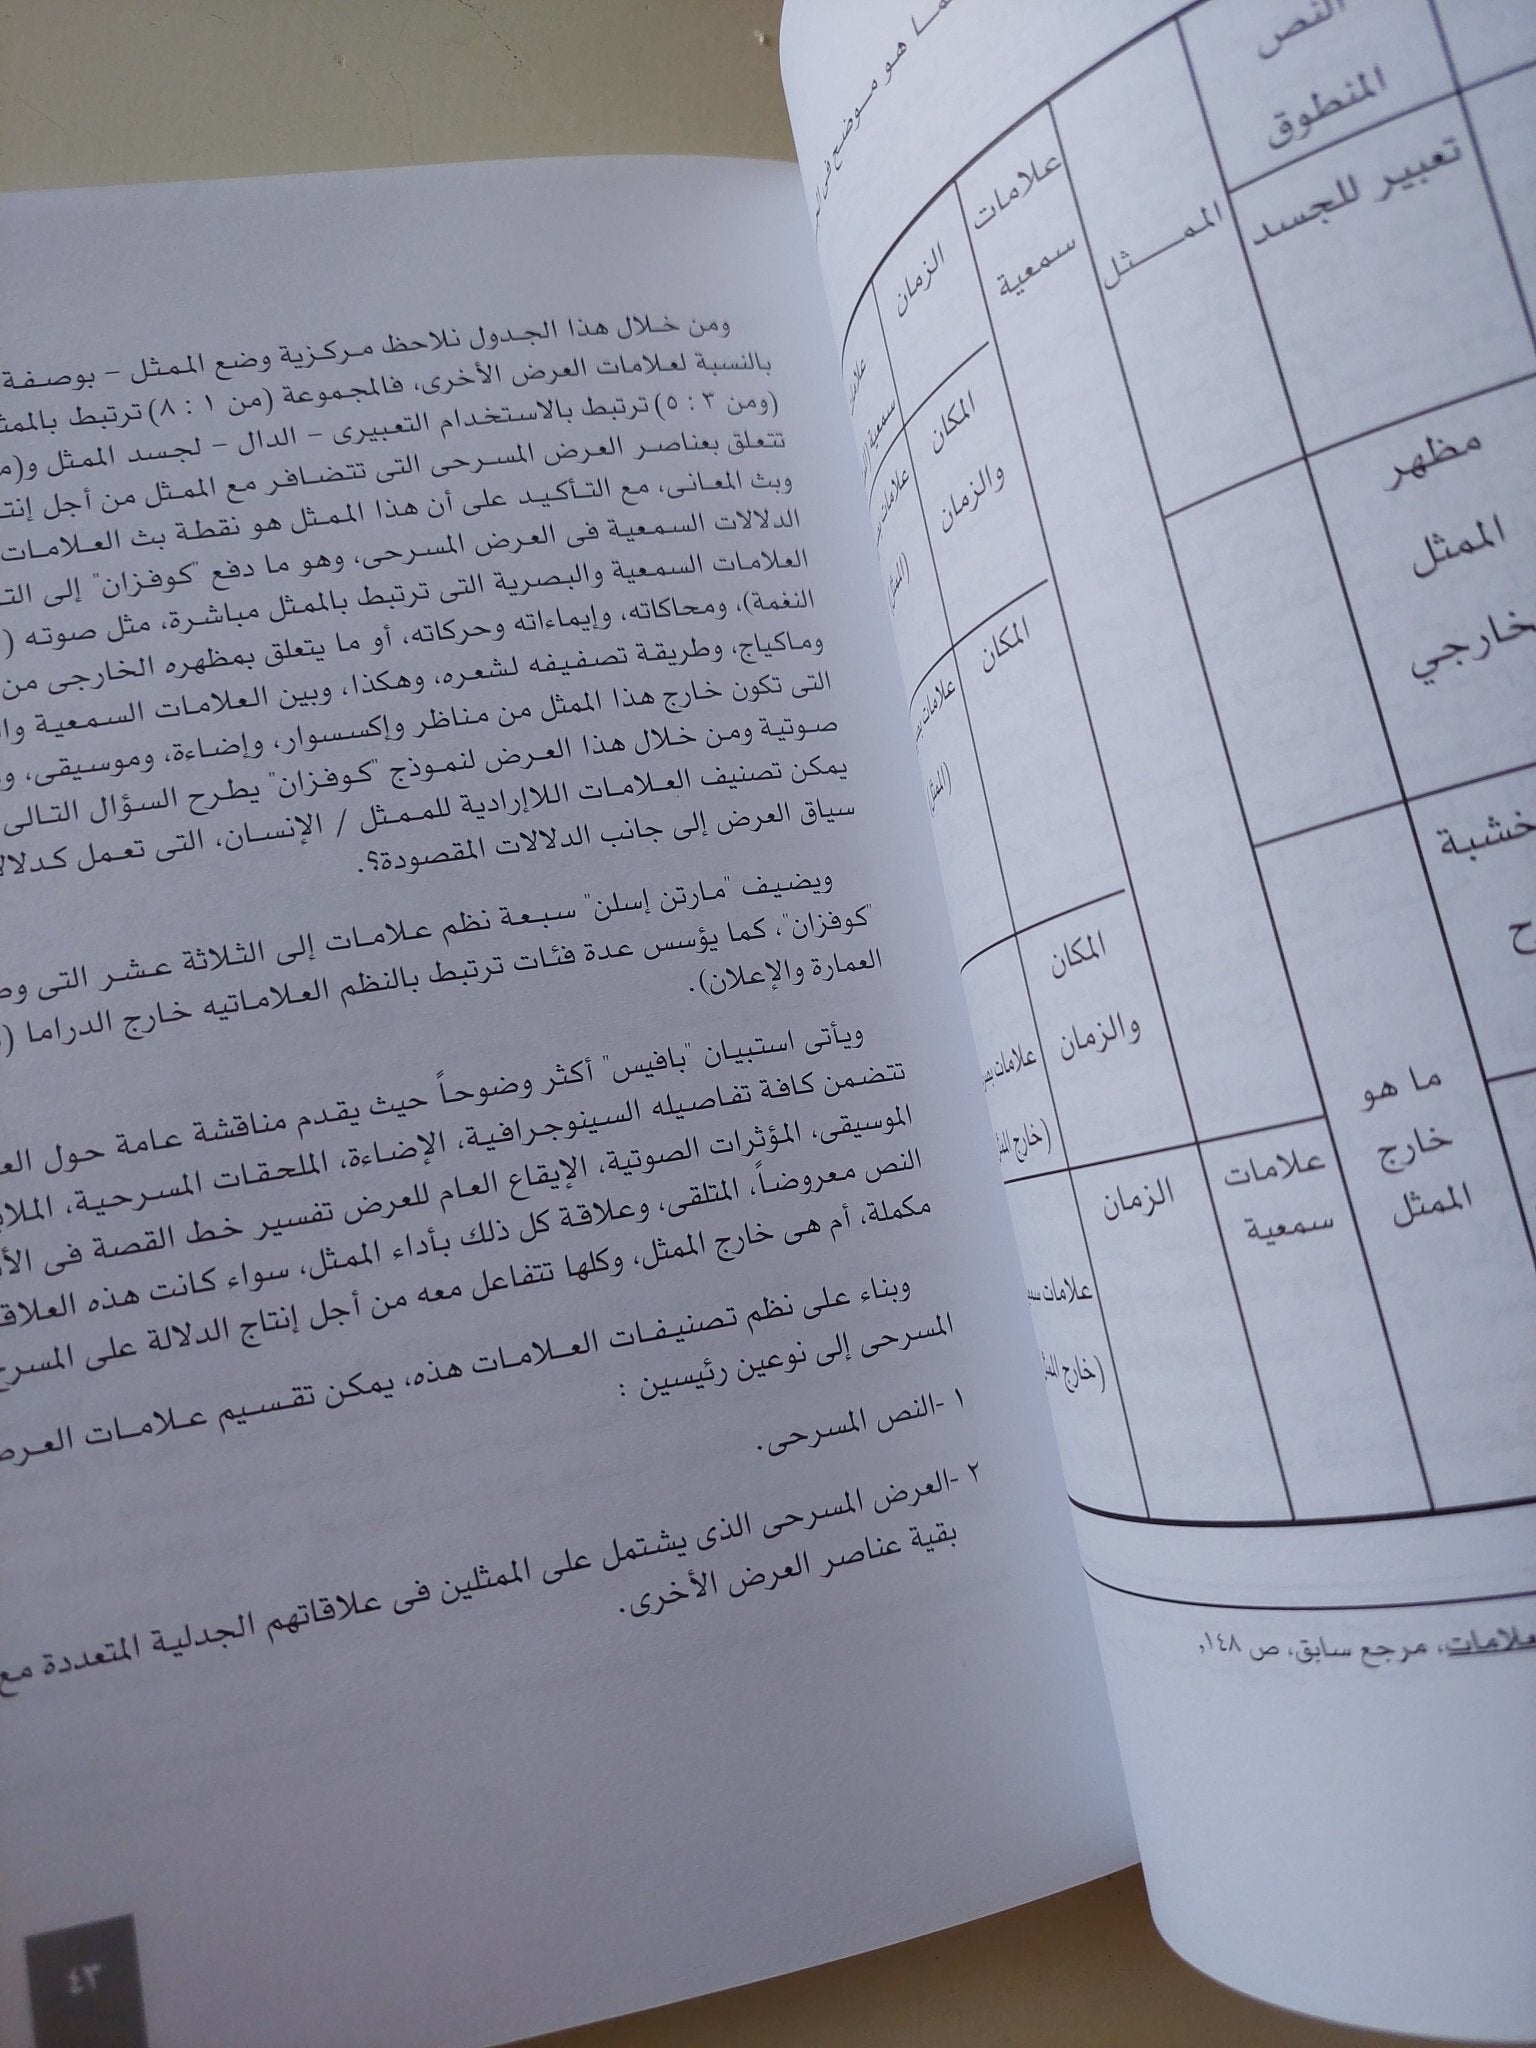 ـما هو موضح فى
النص
المنطوق
تعبير للجسد
الممـــــثل
علامات
سمعية
الزمان
علامات
سمعية
المكان
والزمان
علامات
(الممثل)
مظهر
الممثل
المكان
علامات
(الممثل)
خشبة
المكان
والزمان
علامات
(خارج
ما هو
خارج
الممثل
علامات
سمعية
الزمان
علامات
(خارج
مرجع سابق، ص ١٤٨,
ومن خلال هذا الجدول نلاحظ مركزية وضع الممثل – بوصفة
بالنسبة لعلامات العرض الأخرى، فالمجموعة (من ١ : ٨) ترتبط
(ومن ٣ : ٥) ترتبط بالاستخدام التعبيرى – الدال – لجسد الممثل
تتعلق بعناصر العرض المسرحى التى تتضافر مع الممثل من أجل
وبث المعانى، مع التأكيد على أن هذا الممثل هو نقطة بث العلامات
الدلالات السمعية فى العرض المسرحى، وهو ما دفع "كوفزان" إلى
العلامات السمعية والبصرية التى ترتبط بالممثل مباشرة، مثل صوته (
النغمة)، ومحاكاته، وإيماءاته وحركاته، أو ما يتعلق بمظهره الخارجى من
وماكياج، وطريقة تصفيفه لشعره، وهكذا، وبين العلامات السمعية
التى تكون خارج هذا الممثل من مناظر وإكسسوار، وإضاءة، وموسيقى،
صوتية ومن خلال هذا العرض لنموذج "كوفزان" يطرح السؤال التالى
يمكن تصنيف العلامات اللاإرادية للممثل / الإنسان، التى تعمل
سياق العرض إلى جانب الدلالات المقصودة؟.
ويضيف "مارتن إسلن" سبعة نظم علامات إلى الثلاثة عشر التى
"كوفزان"، كما يؤسس عدة فئات ترتبط بالنظم العلاماتيه خارج الدراما (
العمارة والإعلان).
ويأتى استبيان "بافيس" أكثر وضوحاً حيث يقدم مناقشة عامة حول
تتضمن كافة تفاصيله السينوجرافية، الإضاءة، الملحقات المسرحية،
الموسيقى، المؤثرات الصوتية، الإيقاع العام للعرض تفسير خط القصة فى
النص معروضاً، المتلقى، وعلاقة كل ذلك بأداء الممثل، سواء كانت هذه
مكملة، أم هى خارج الممثل، وكلها تتفاعل معه من أجل إنتاج الدلالة على المسرح
وبناء على نظم تصنيفات العلامات هذه، يمكن تقسيم علامات العرض
المسرحى إلى نوعين رئيسين :
١ -النص المسرحى.
٢ -العرض المسرحى الذى يشتمل على الممثلين فى علاقاتهم الجدلية المتعددة مع
بقية عناصر العرض الأخرى.
٤٣